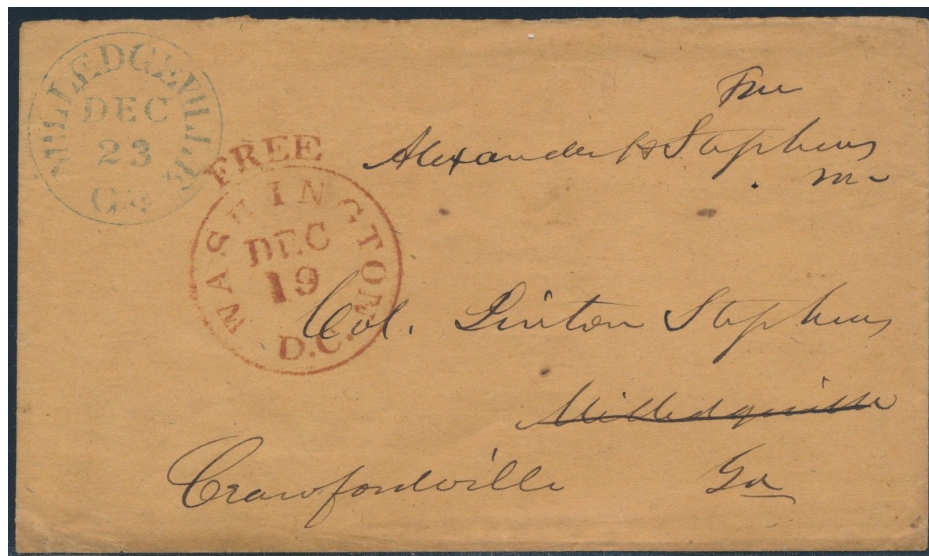 MILLEDGEVILLE
DEC
23
Ga
FREE
WASHINGTON
DEC
19
D.C.
Free
Alexander H Stephens
Col. Linton Stephens
Milledgeville
Crawfordville Ga